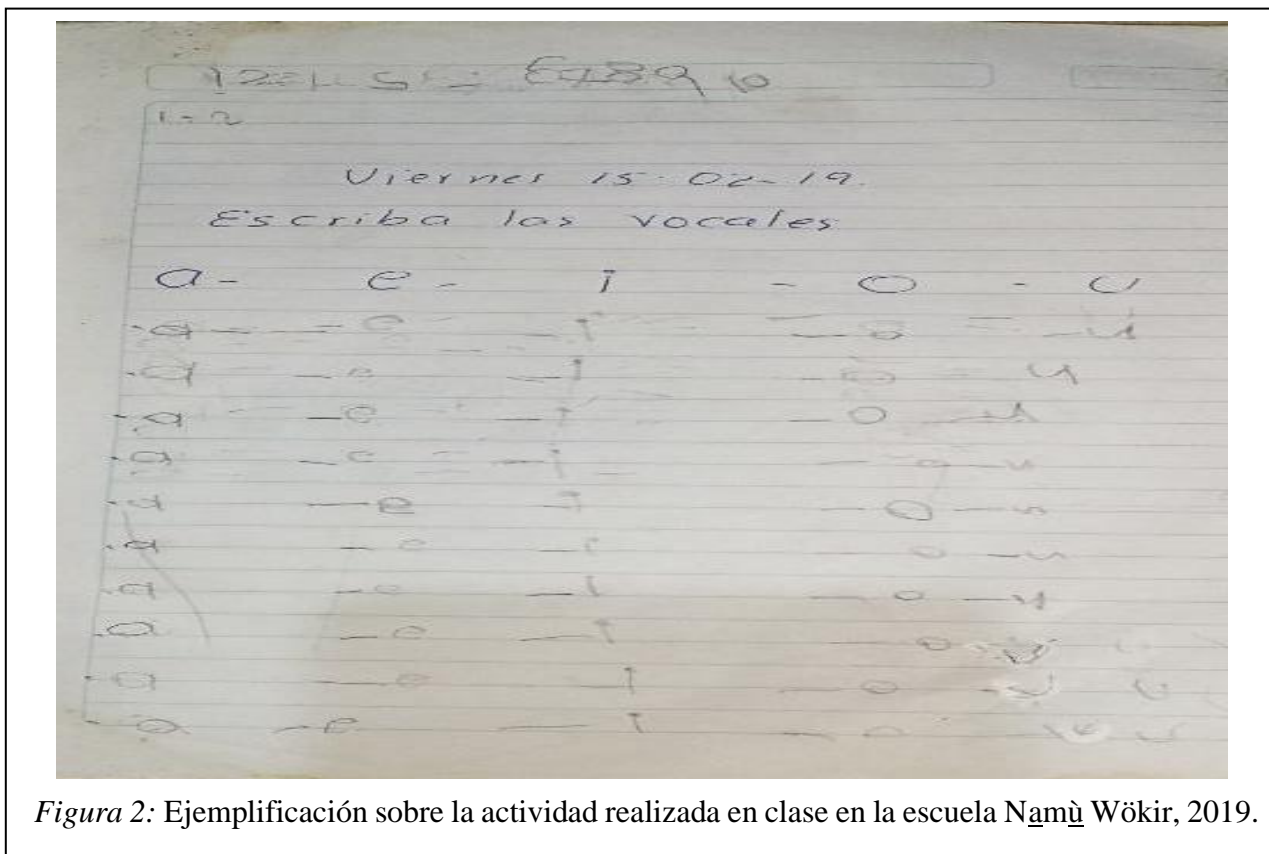 1 - 2
Viernes 15-02-19.
Escriba las vocales
a - e - i - o - u
- a - e - i - o - u
- a - e - i - o - u
- a - e - i - o - u
- a - e - i - o - u
- a - e - i - o - u
- a - e - i - o - u
- a - e - i - o - u
- a - e - i - o - u
- a - e - i - o - u
- a - e - i - o - u
Figura 2: Ejemplificación sobre la actividad realizada en clase en la escuela Na̱mù̱ Wökir, 2019.